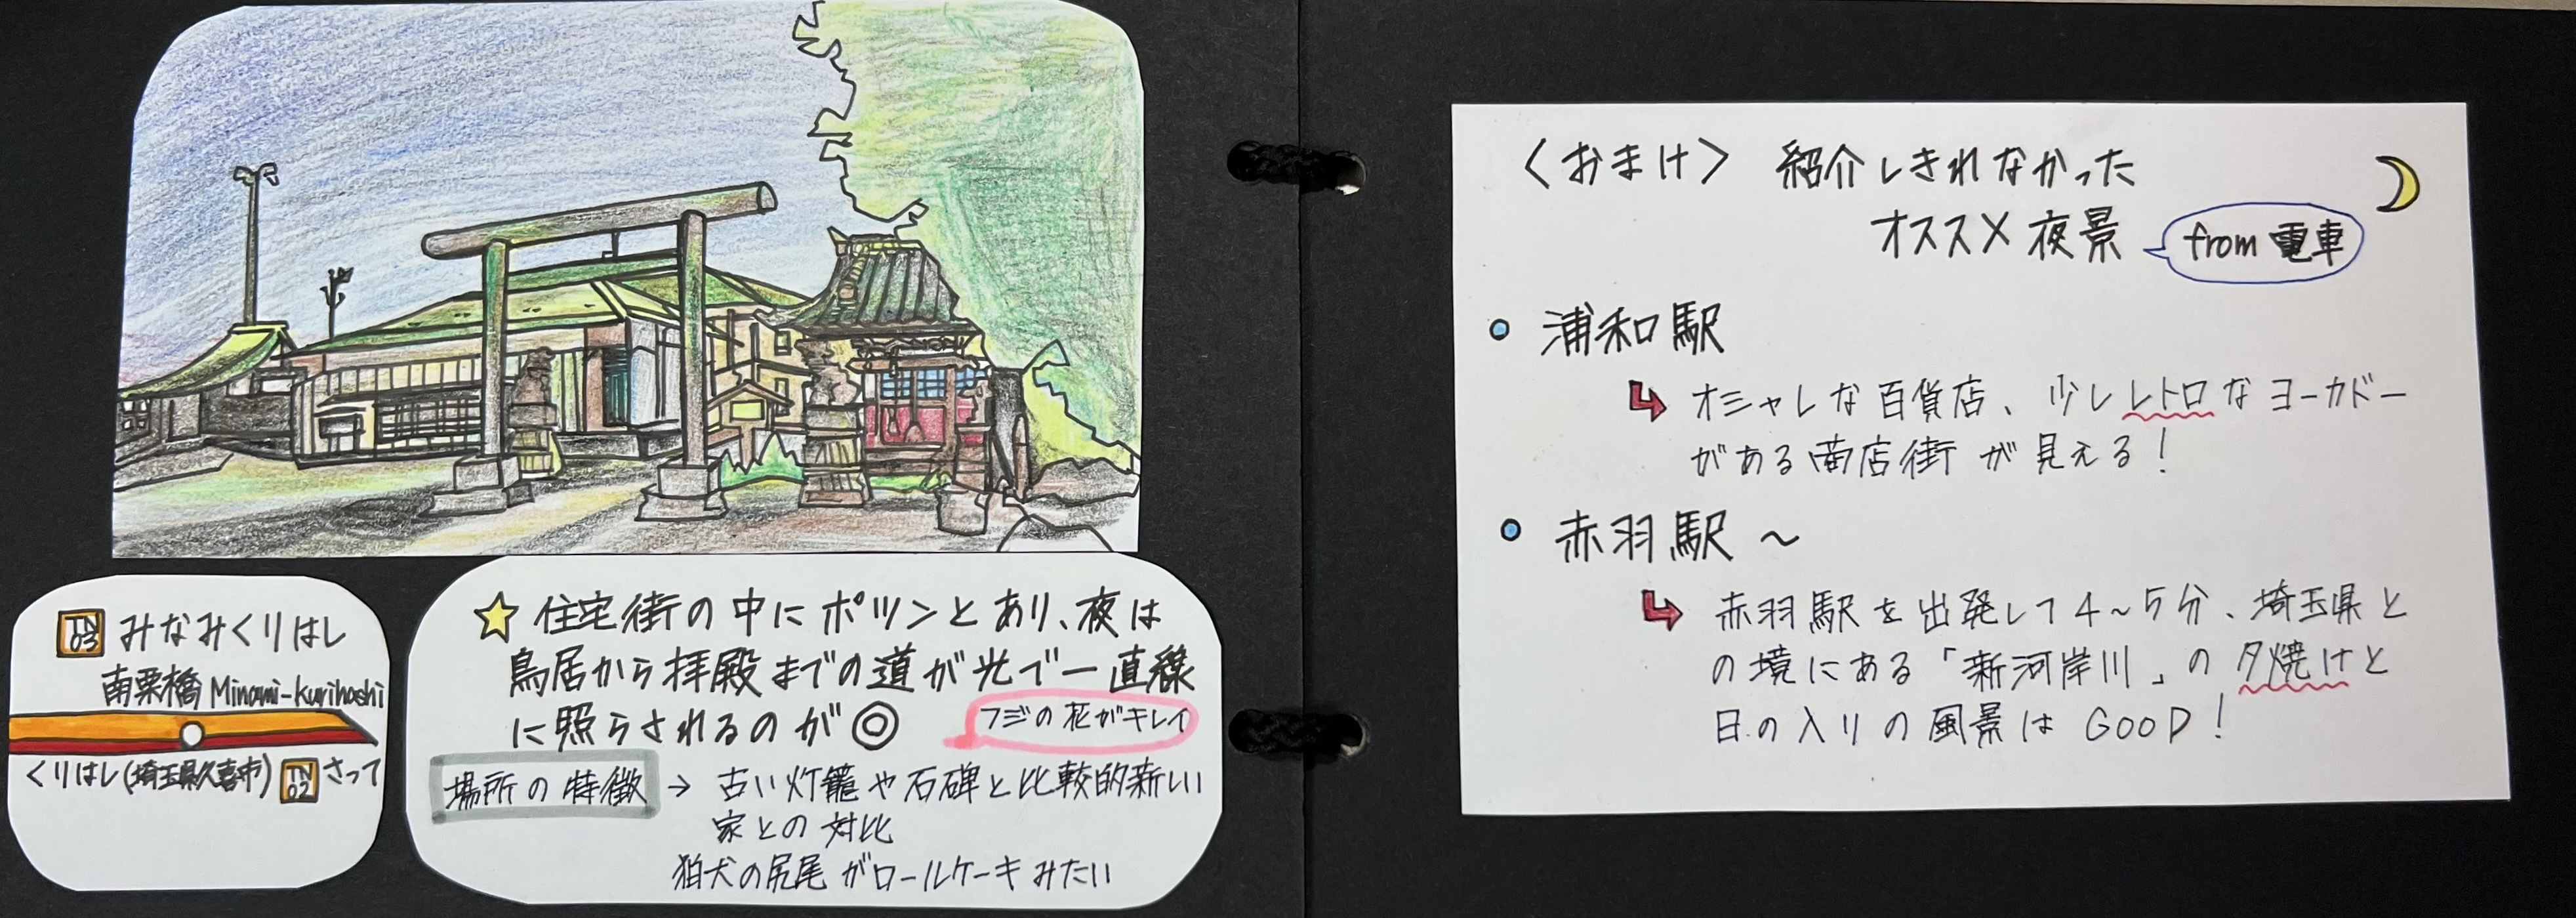 TN
03
みなみくりはし
南栗橋 Minami-kurihashi
くりはし(埼玉県久喜市)
TN
02
さって
住宅街の中にポツンとあり、夜は
鳥居から拝殿までの道が光で一直線
に照らされるのが◎
フジの花がキレイ
場所の特徴 → 古い灯籠や石碑と比較的新しい
家との対比
狛犬の尻尾がロールケーキみたい
〈おまけ〉 紹介しきれなかった
オススメ夜景
from 電車
• 浦和駅
オシャレな百貨店、少しレトロなヨーカドー
がある商店街が見える!
• 赤羽駅~
赤羽駅を出発して4~5分、埼玉県と
の境にある「新河岸川」の夕焼けと
日の入りの風景は GOOD!